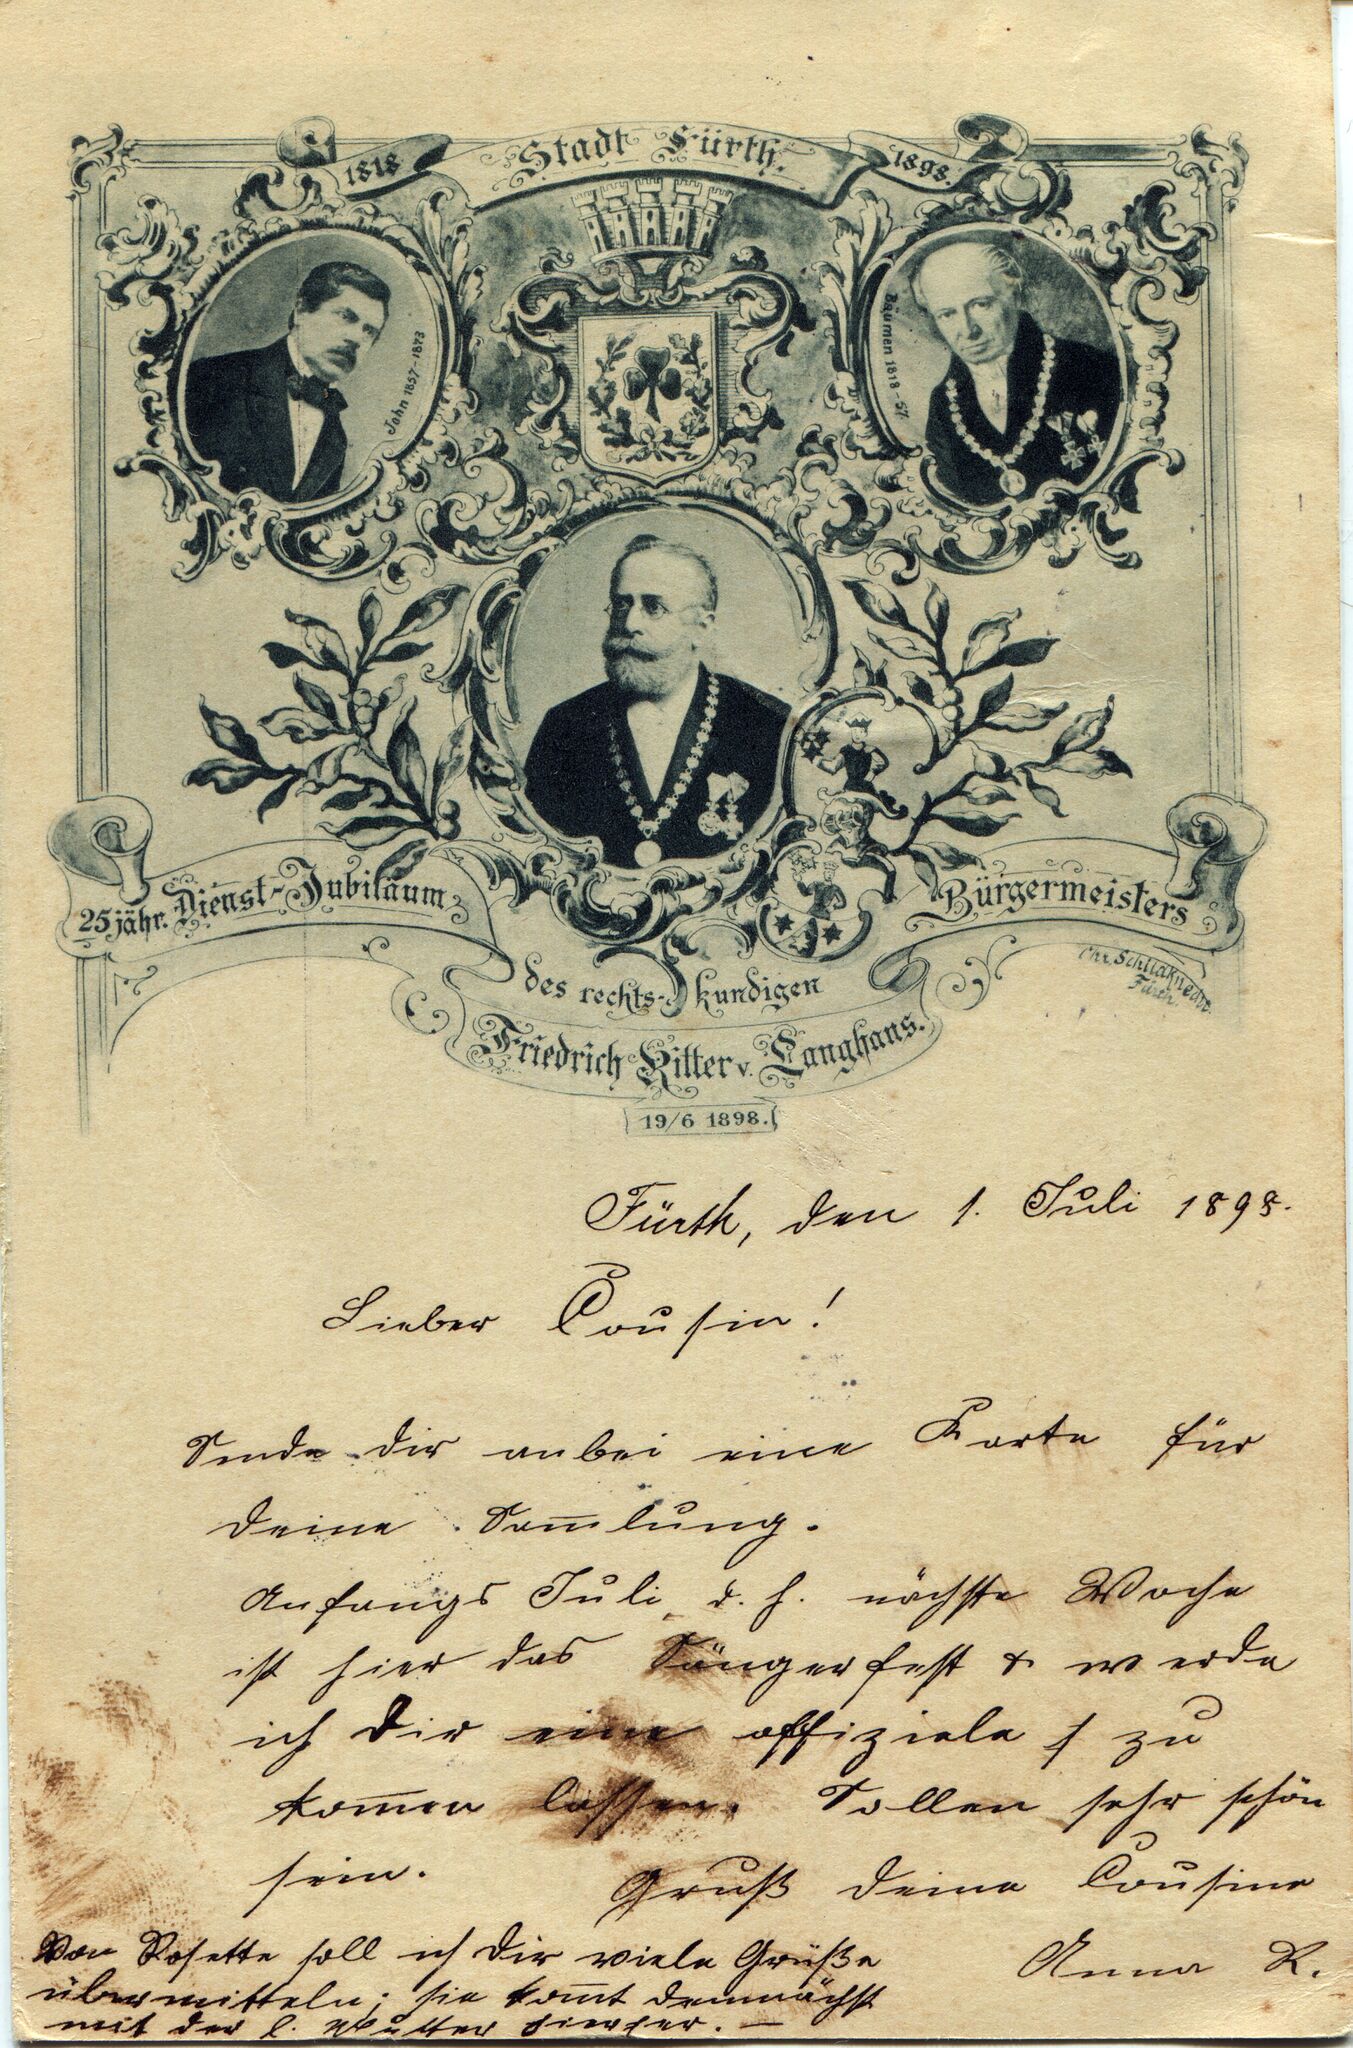 1818 Stadt Fürth. 1898.
John 1857-1873
Bäumen 1818-57
25jähr. Dienst-Jubiläum
des rechts-kundigen
Bürgermeisters
Friedrich Ritter v. Langhans.
19/6 1898.
Fürth.
Fürth, den 1. Juli 1898.
Lieber Cousin!
Sende dir anbei eine Karte für
deine Sammlung.
Anfangs Juli d. h. nächste Woche
ist hier das Sängerfest & werde
ich Dir eine offiziele zu
kommen lassen. Sollen sehr schön
sein.
Gruß deine Cousine
Anna R.
Von Rosette soll ich Dir viele Grüße
übermitteln; sie kommt demnächst
mit der l. Mutter hierher. —